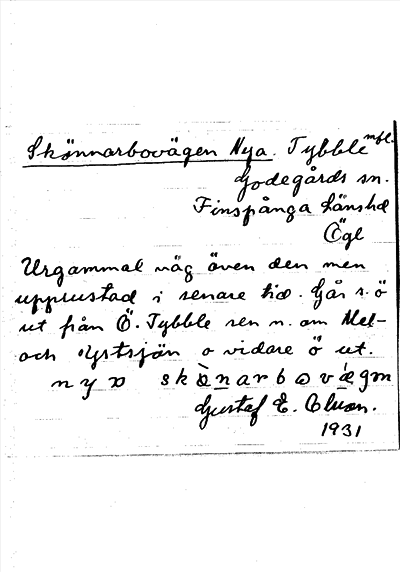 Skönnarbovägen Nya. Tybble mfl.
Godegårds sn.
Finspånga länshd
Ögl
Urgammal väg även den men
upprustad i senare tid. Går s. ö
ut från Ö. Tybble sen n. om Mel-
och Ystsjön o vidare ö ut.
Gustaf E.
1931